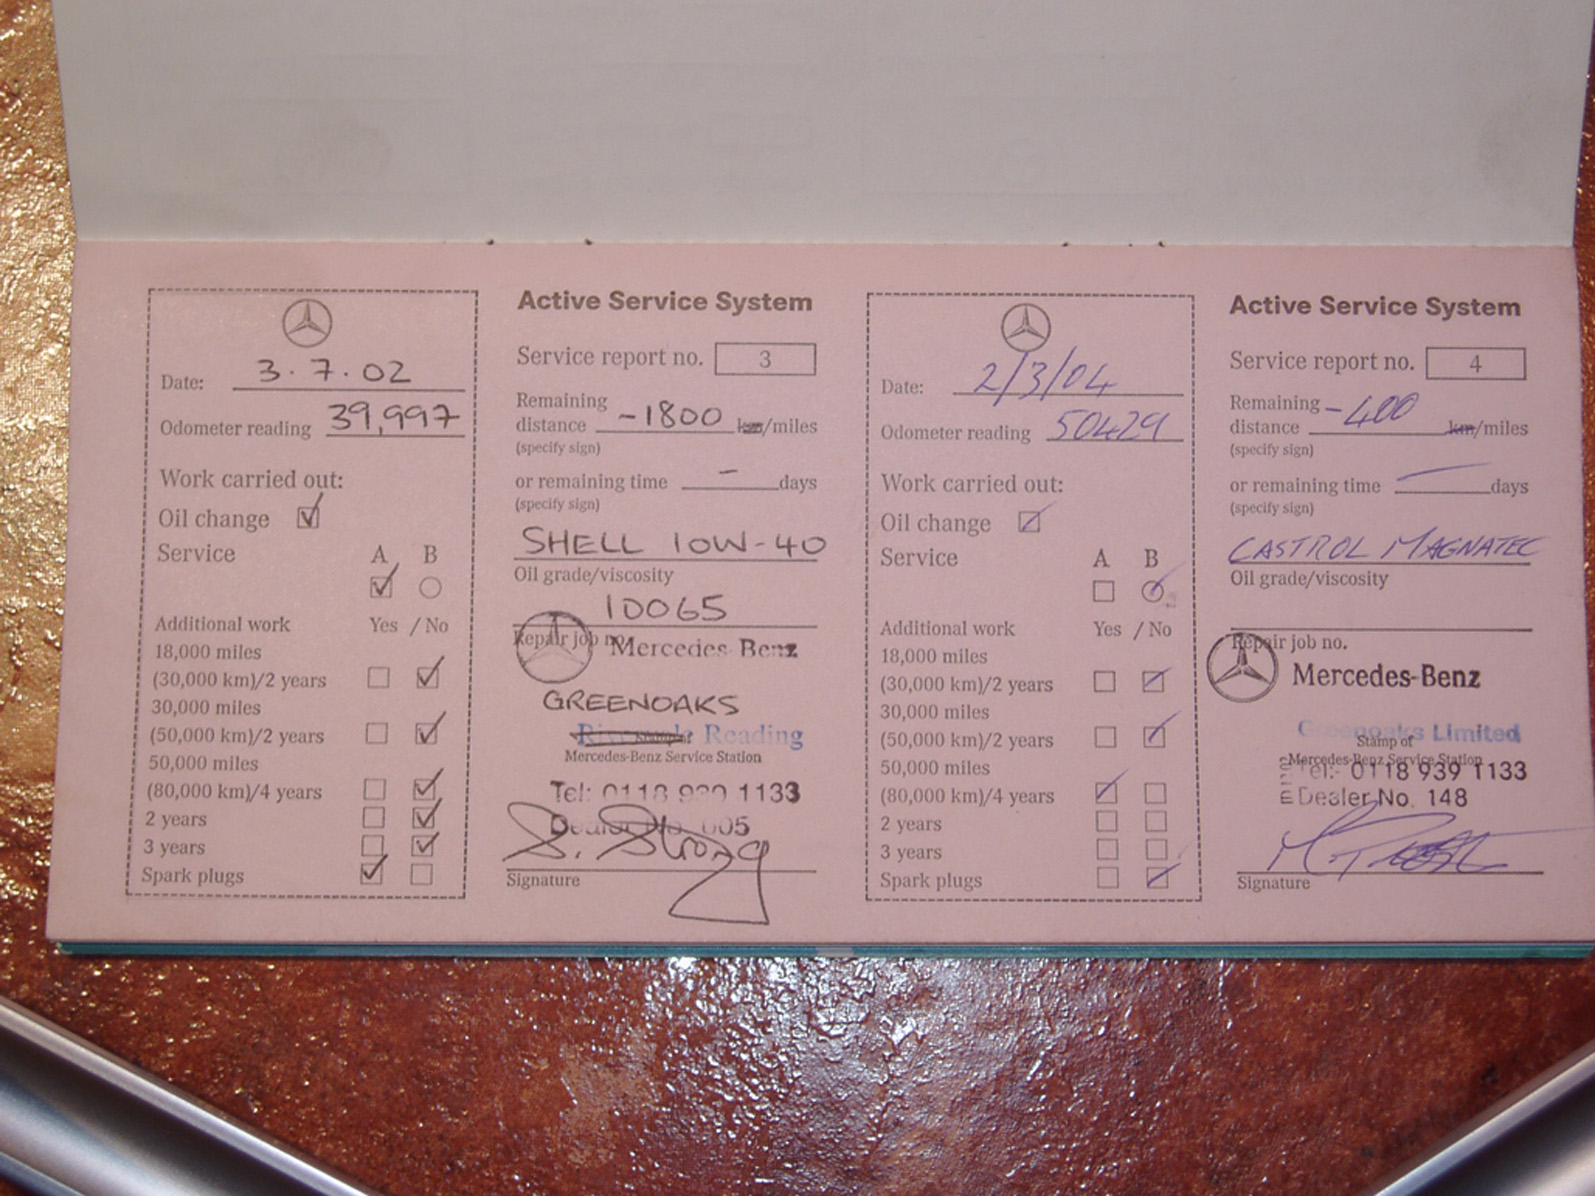 Date: 3.7.02
Odometer reading 39,997
Work carried out:
Oil change
Service A B
Additional work Yes / No
18,000 miles
(30,000 km)/2 years
30,000 miles
(50,000 km)/2 years
50,000 miles
(80,000 km)/4 years
2 years
3 years
Spark plugs
Active Service System
Service report no. 3
Remaining
distance -1800 km/miles
(specify sign)
or remaining time - days
(specify sign)
SHELL 10W-40
Oil grade/viscosity
10065
Repair job no.
Mercedes-Benz
GREENOAKS
Reading
Mercedes-Benz Service Station
Tel: 0118 939 1133
Dealer No. 005
S. Strong
Signature
Date: 2/3/04
Odometer reading 50429
Work carried out:
Oil change
Service A B
Additional work Yes / No
18,000 miles
(30,000 km)/2 years
30,000 miles
(50,000 km)/2 years
50,000 miles
(80,000 km)/4 years
2 years
3 years
Spark plugs
Active Service System
Service report no. 4
Remaining
distance -400 km/miles
(specify sign)
or remaining time — days
(specify sign)
CASTROL MAGNATEC
Oil grade/viscosity
Repair job no.
Mercedes-Benz
Greenoaks Limited
Stamp of
Mercedes-Benz Service Station
Tel:- 0118 939 1133
Dealer No. 148
Signature